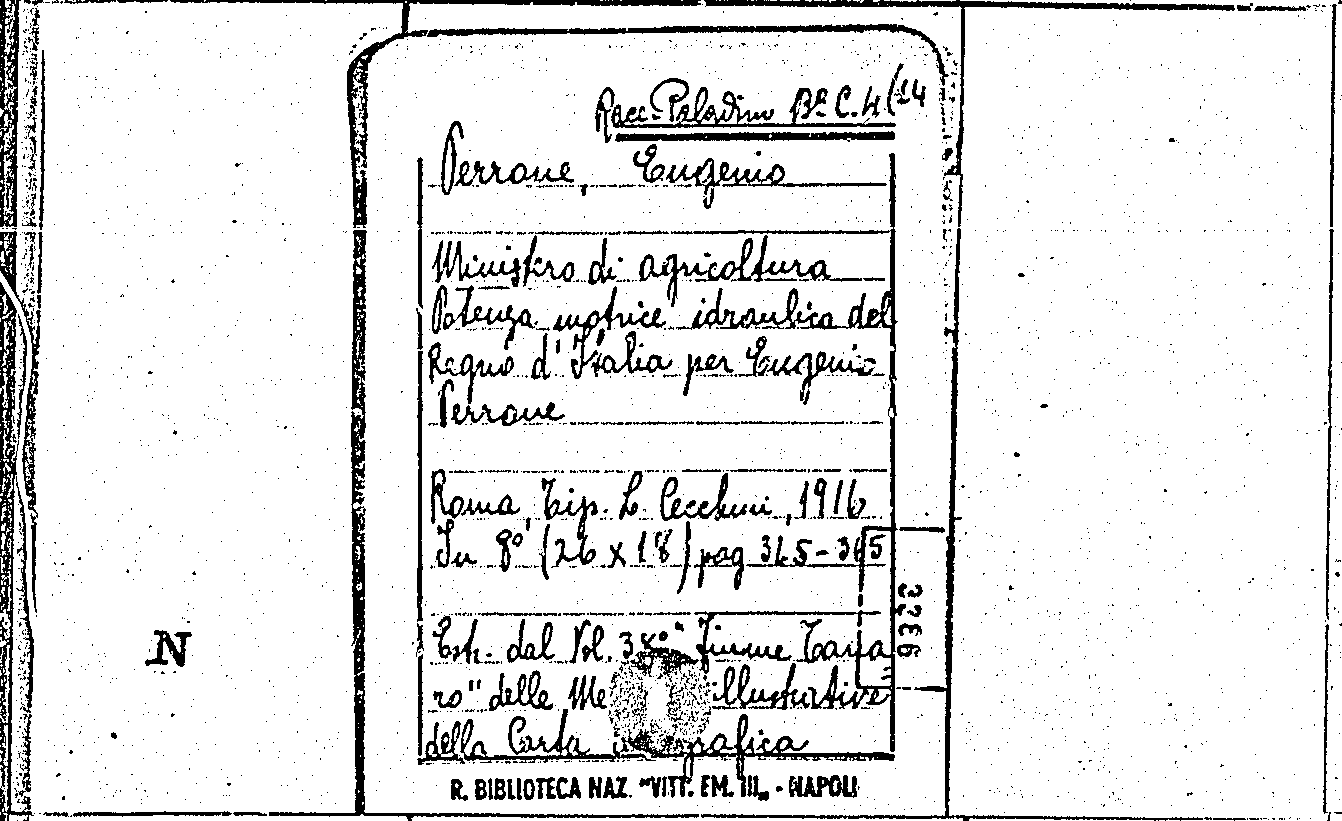 Racc. Paladino Bª C. 4 (14
Perrone, Eugenio
Ministro di agricoltura
Potenza motrice idraulica del
Regno d'Italia per Eugenio
Perrone
Roma, Tip. L. Cecchini, 1916
In 8° (26 x 18) pag 365-365
Estr. dal Vol. 38° "Fiume Tana
ro" delle Me illustrative
della Carta grafica
3286
N
R. BIBLIOTECA NAZ. "VITT. EM. III„ - NAPOLI